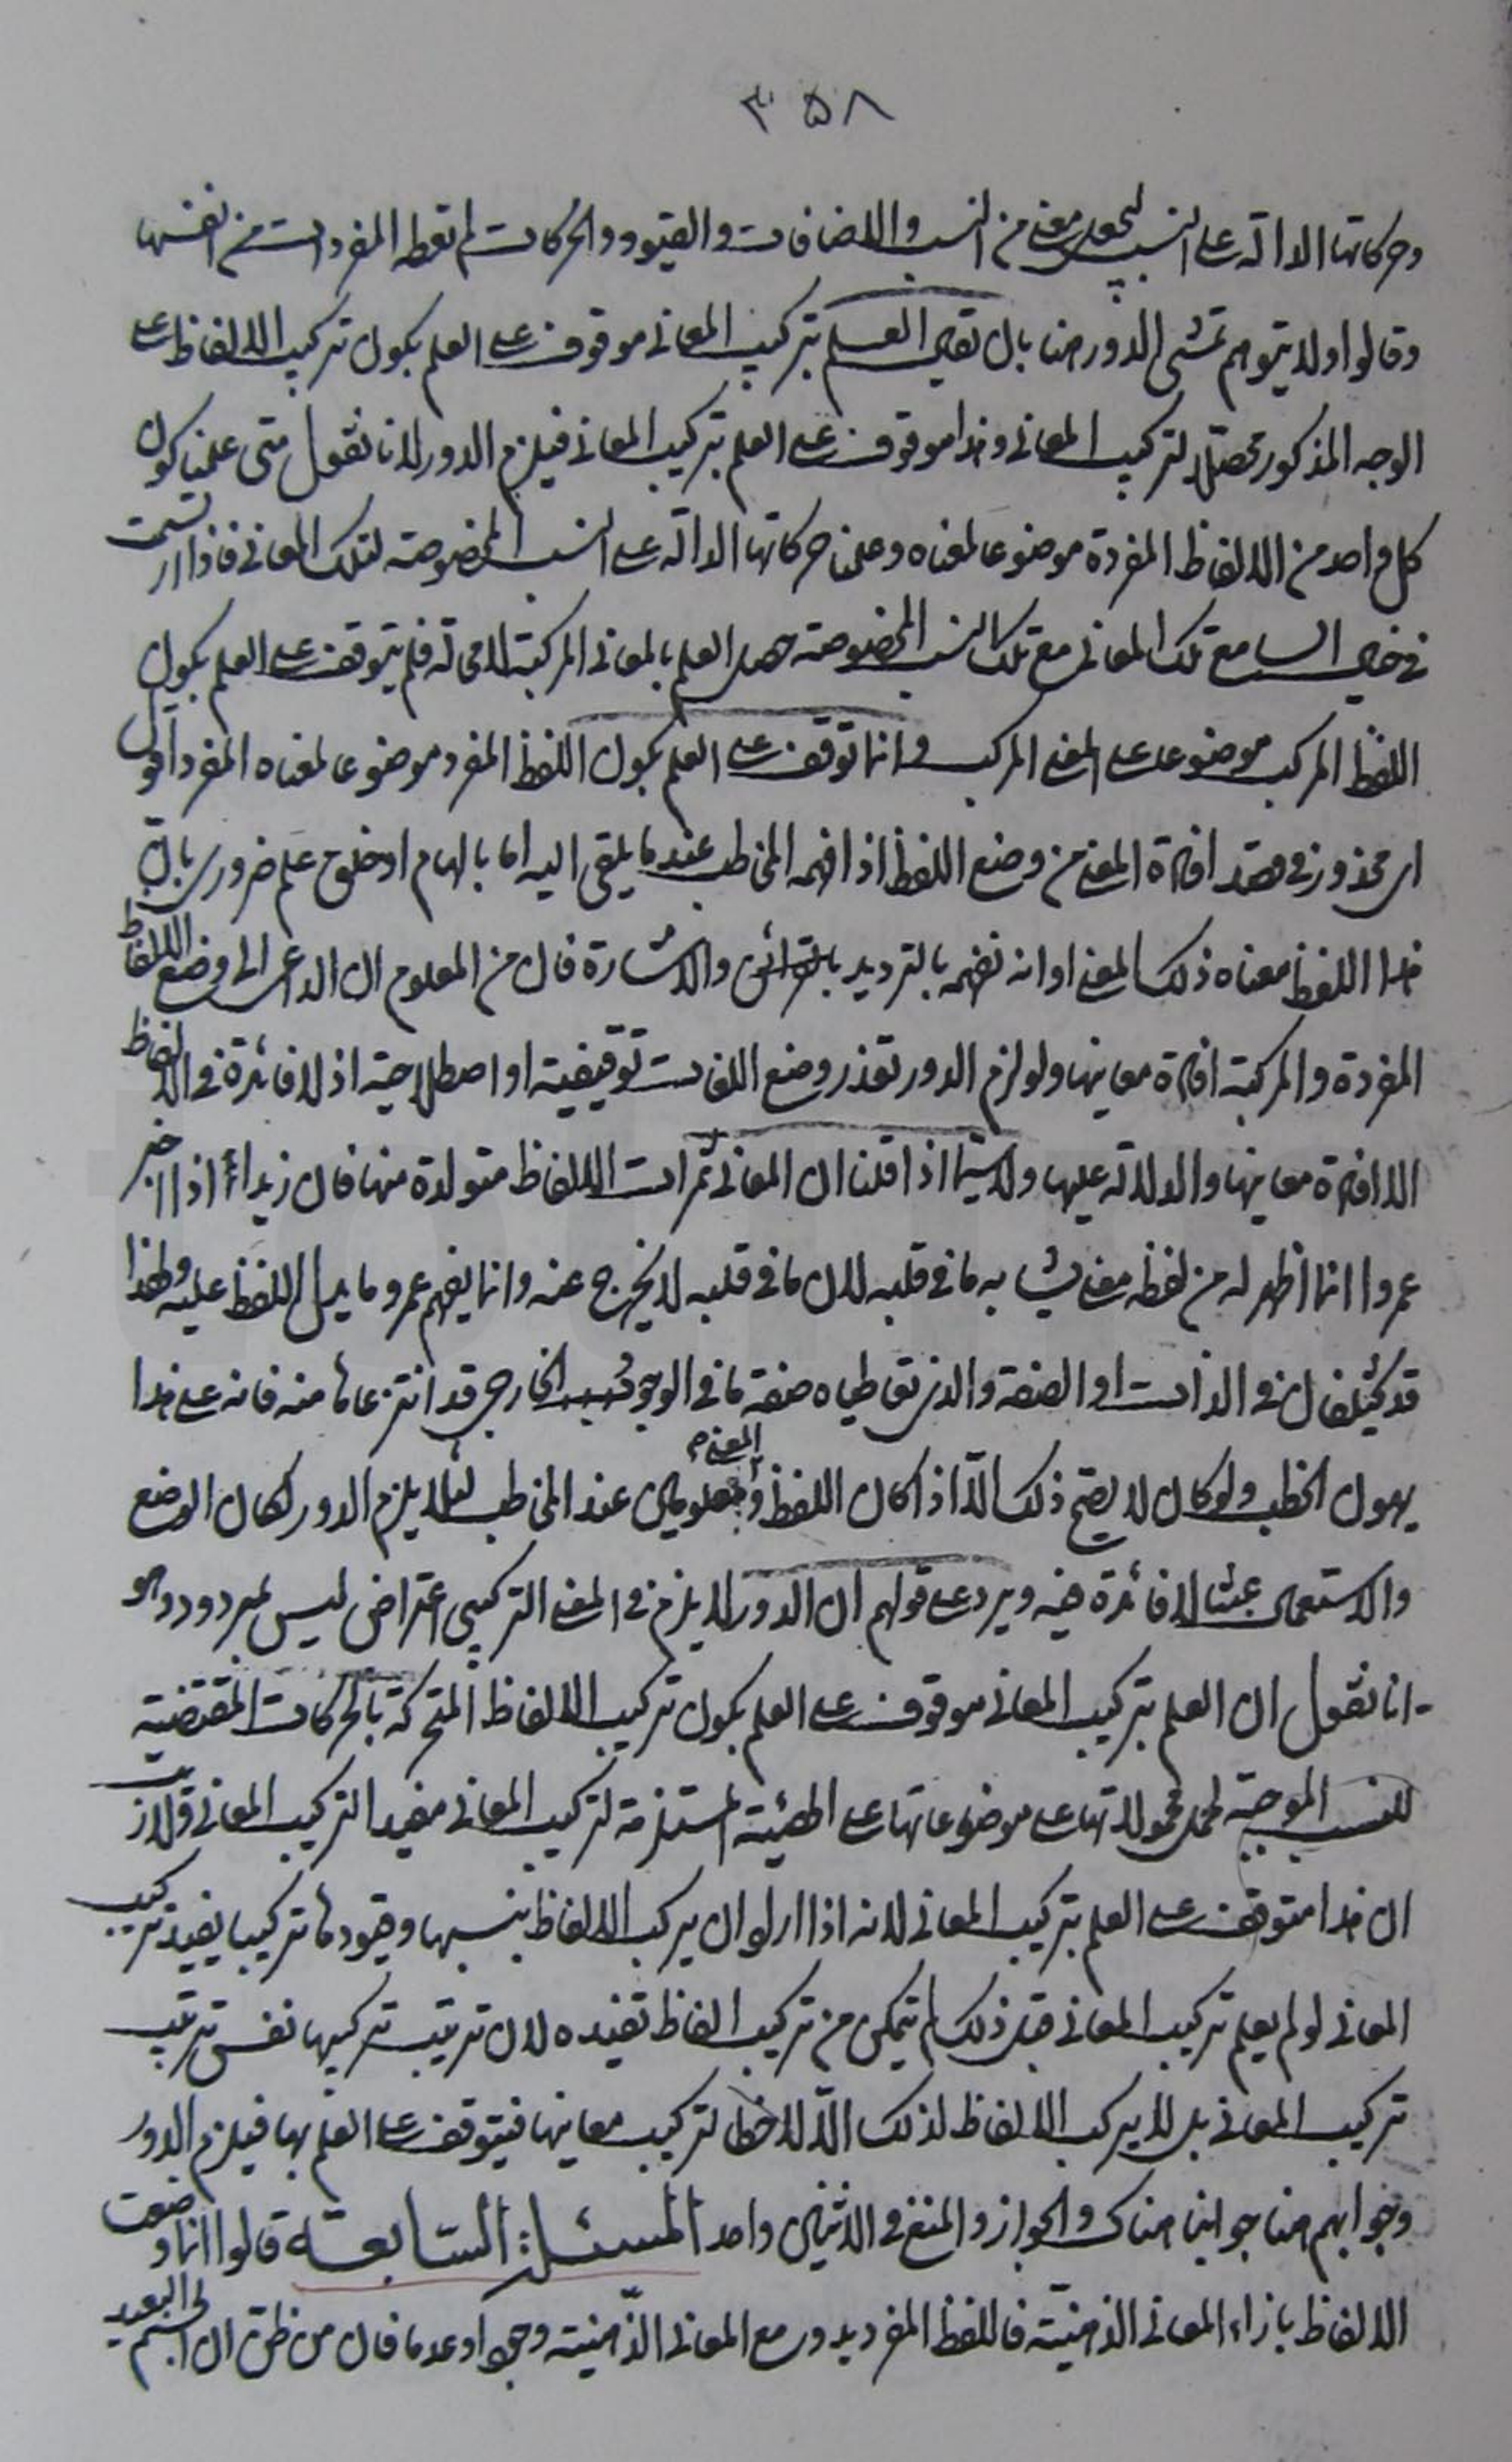 ٣٥٨
وحركاتها الدالة على النسب لتحصل معنى من النسب والاضافات والقيود والحركات لم تعطه المفردات من انفسها
وقالوا ولا يتوهم تمشى الدور هنا بان يقال العلم بتركيب المعانى موقوف على العلم بكون تركيب الالفاظ على
الوجه المذكور محصّلا لتركيب المعانى وهذا موقوف على العلم بتركيب المعانى فيلزم الدور لانا نقول متى علمنا كون
كل واحد من الالفاظ المفردة موضوعا لمعناه وعلمنا حركاتها الدالة على النسب المخصوصة لتلك المعانى فاذا ارتسمت
فى خيال السامع تلك المعانى مع تلك النسب المخصوصة حصل العلم بالمعانى المركبة لامحالة فلم يتوقف على العلم بكون
اللفظ المركب موضوعا على المعنى المركب وانما توقف على العلم بكون اللفظ المفرد موضوعا لمعناه المفرد اقول
اى محذور فى قصد افادة المعنى من وضع اللفظ اذا فهمه المخاطب عندما يلقى اليه اما بالهام او خلق علم ضرورى بان
هذا اللفظ معناه ذلك المعنى او انه نفهمه بالترديد بالقرائن والاشارة فان من المعلوم ان الداعى الى وضع الالفاظ
المفردة والمركبة افادة معانيها ولو لزم الدور تعذر وضع اللغات توقيفية او اصطلاحية اذ لا فائدة فى الالفاظ
الا افادة معانيها والدلالة عليها ولاسيّما اذا قلنا ان المعانى ثمرات الالفاظ متولدة منها فان زيدا اذا اخبر
عمروا انما اظهر له من لفظه معنى يشابه ما فى قلبه لان ما فى قلبه لا يخرج عنه وانما يفهم عمرو ما يدل اللفظ عليه ولهذا
قد يختلفان فى الذات او الصفة والذى تعاطياه صفة ما فى الوجود الخارجى قد انتزعاها منه فانه على هذا
يهون الخطب ولو كان لا يصح ذلك الّا اذا كان اللفظ والمعنى معلومين عند المخاطب لئلا يلزم الدور لكان الوضع
والاستعمال عبثا لا فائدة فيه ويرد على قولهم ان الدور لا يلزم فى المعنى التركيبى اعتراض ليس بمردود وهو
انا نقول ان العلم بتركيب المعانى موقوف على العلم بكون تركيب الالفاظ المتحركة بالحركات المقتضية
للنسب الموجبة لحمل محمولاتها على موضوعاتها على الهيئة المستلزمة لتركيب المعانى مفيدا لتركيب المعانى ولا ريب
ان هذا متوقف على العلم بتركيب المعانى لانه اذا اراد ان يركب الالفاظ بنسبها وقيودها تركيبا يفيد تركيب
المعانى لو لم يعلم تركيب المعانى قبل ذلك لم يتمكن من تركيب الفاظ تفيده لان ترتيب تركيبها نفس ترتيب
تركيب المعانى بل لا يركب الالفاظ لذلك الّا لاحظا لتركيب معانيها فيتوقف على العلم بها فيلزم الدور
وجوابهم هنا جوابنا هناك والجواز والمنع فى الاثنين واحد المسئلة السابعة قالوا انا وضعت
الالفاظ بازاء المعانى الذهنيّة فاللفظ المفرد يدور مع المعانى الذّهنية وجودا وعدما فان من ظنّ ان الجسم البعيد